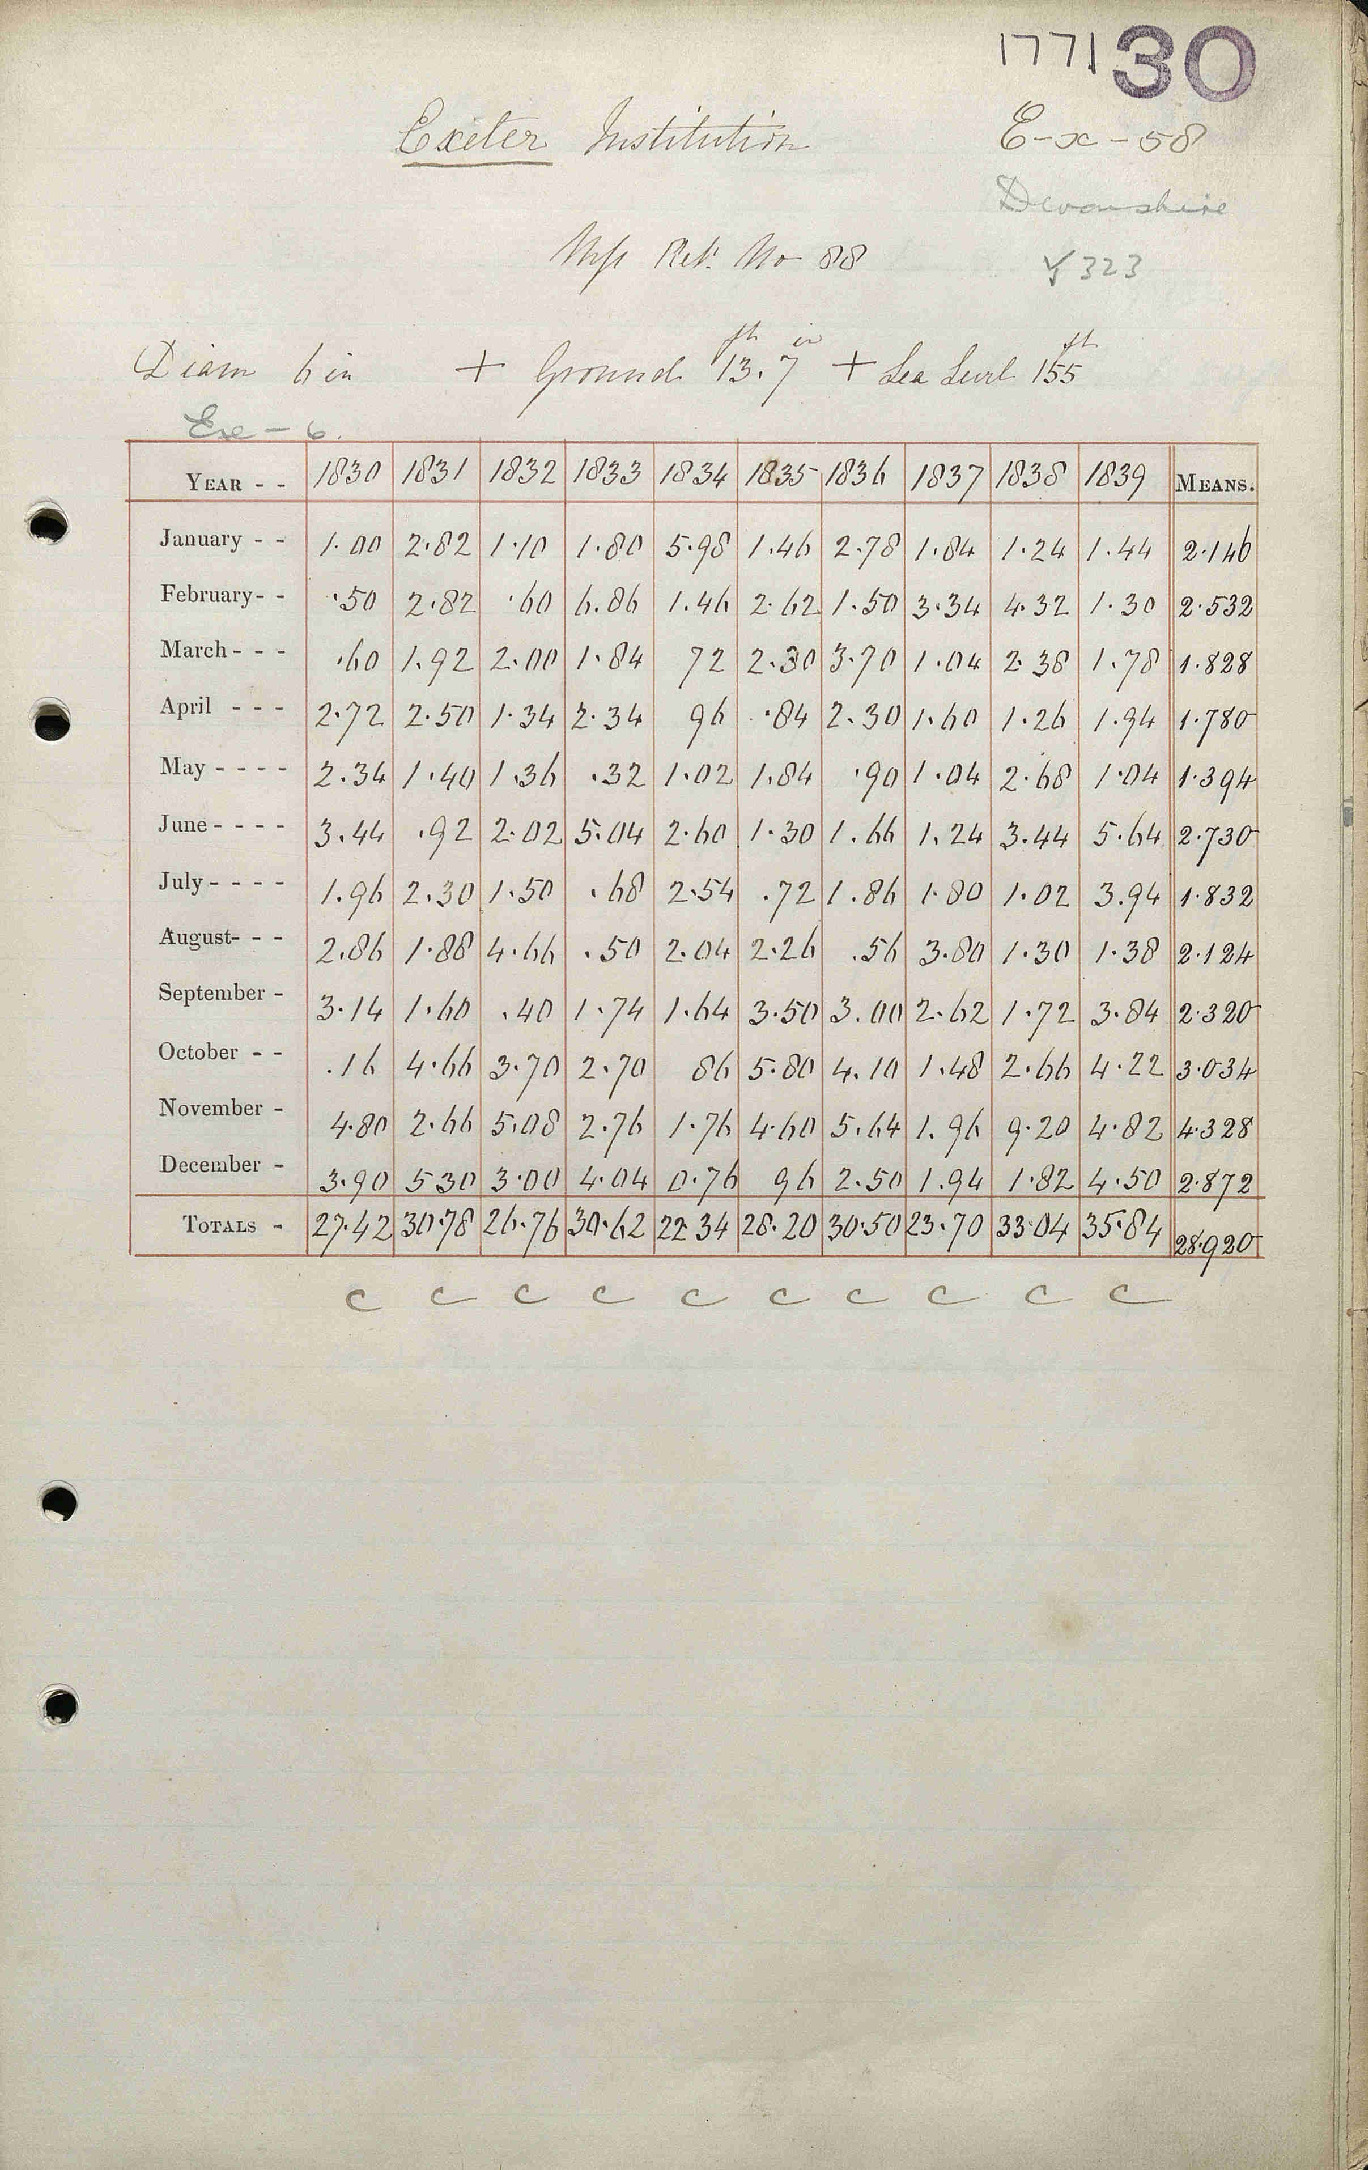 1771 30
Exeter Institution E-x-58
Devonshire
Mss Ret. No 88
323
Diam 6 in + Ground 13.7 ft in + Sea Level 155 ft
Exe - 6.
YEAR - - 1830 1831 1832 1833 1834 1835 1836 1837 1838 1839 MEANS.
January - - 1.00 2.82 1.10 1.80 5.98 1.46 2.78 1.84 1.24 1.44 2.146
February - - .50 2.82 .60 6.86 1.46 2.62 1.50 3.34 4.32 1.30 2.532
March - - - .60 1.92 2.00 1.84 72 2.30 3.70 1.04 2.38 1.78 1.828
April - - - 2.72 2.50 1.34 2.34 96 .84 2.30 1.60 1.26 1.94 1.780
May - - - - 2.34 1.40 1.36 .32 1.02 1.84 .90 1.04 2.68 1.04 1.394
June - - - - 3.44 .92 2.02 5.04 2.60 1.30 1.66 1.24 3.44 5.64 2.730
July - - - - 1.96 2.30 1.50 .68 2.54 .72 1.86 1.80 1.02 3.94 1.832
August - - - 2.86 1.88 4.66 .50 2.04 2.26 .56 3.80 1.30 1.38 2.124
September - 3.14 1.60 .40 1.74 1.64 3.50 3.00 2.62 1.72 3.84 2.320
October - - .16 4.66 3.70 2.70 86 5.80 4.10 1.48 2.66 4.22 3.034
November - 4.80 2.66 5.08 2.76 1.76 4.60 5.64 1.96 9.20 4.82 4.328
December - 3.90 5 30 3.00 4.04 0.76 96 2.50 1.94 1.82 4.50 2.872
TOTALS - 27.42 30.78 26.76 30.62 22 34 28.20 30.50 23.70 33.04 35.84 28.920
C C C C C C C C C C